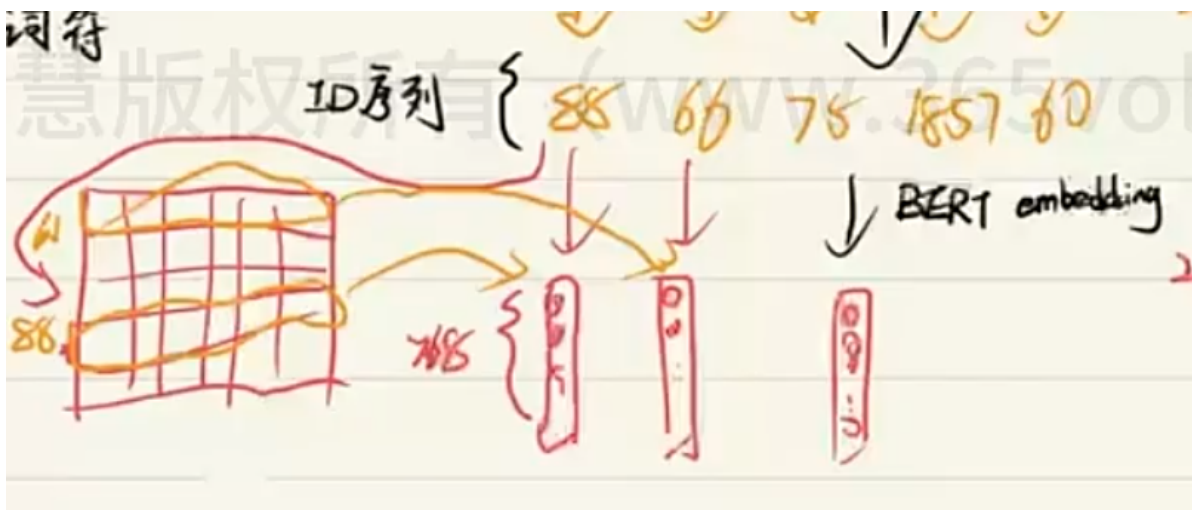 词符
慧版权所有（www.365vol
ID序列 { 88 66 75 1857 60
BERT embedding
88
768